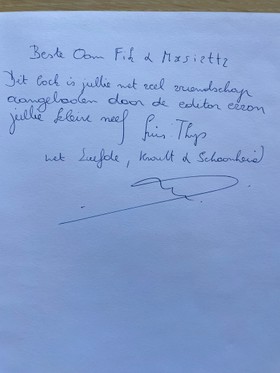 Beste Oom Fik &
Dit boek is jullie met veel vriendschap
aangeboden door de editor
jullie kleine neef Thys
met Liefde, & Schoonheid